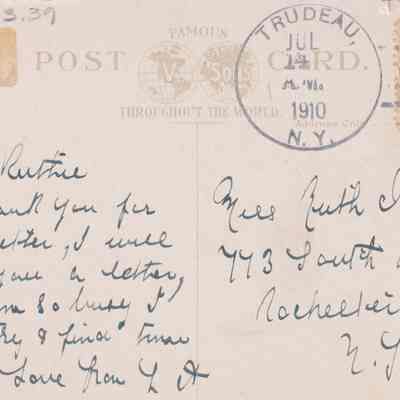 3.39
FAMOUS
POST CARD.
V. & Sons
THROUGHOUT THE WORLD.
Address Only
TRUDEAU,
JUL
14
1910
N.Y.
Ruthie
ank you for
etter, I will
you a letter,
am so busy I
try & find time
Love from L A
Miss Ruth
773 South
Rochester
N.Y